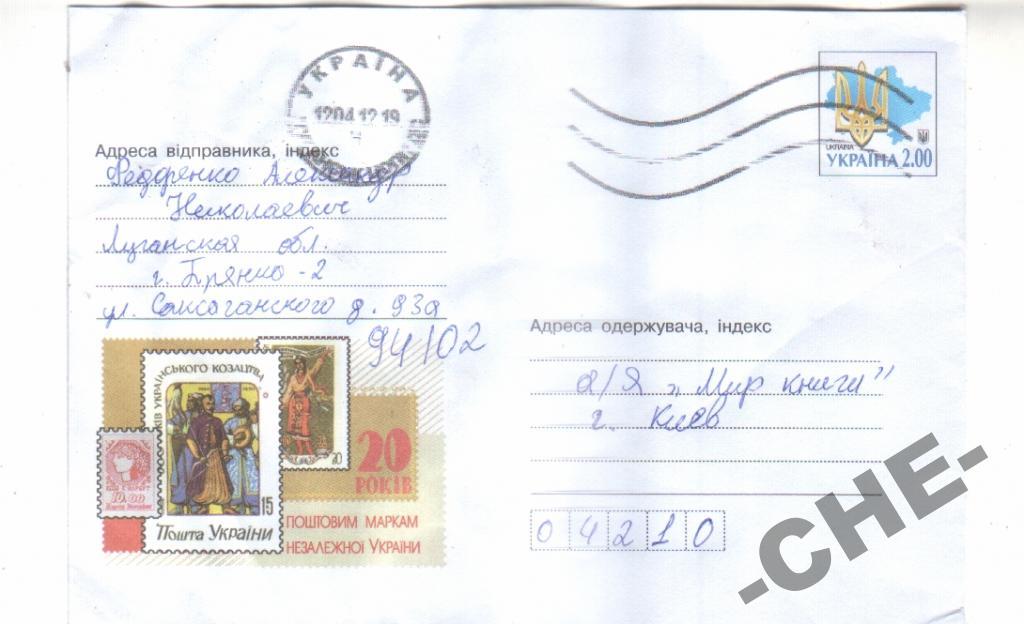 УКРАЇНА
1204 12 19
UKRAINA
УКРАЇНА 2.00
Адреса відправника, індекс
Федоренко Александр
Николаевич
Луганская обл.
г. Брянка - 2
ул. Саксаганского д. 93а
94102
Адреса одержувача, індекс
а/я „Мир книги"
г. Киев
04210
КІВ УКРАЇНСЬКОГО КОЗАЦТВА
15
Пошта України
20
10.00
20
РОКІВ
ПОШТОВИМ МАРКАМ
НЕЗАЛЕЖНОЇ УКРАЇНИ
-CHE-